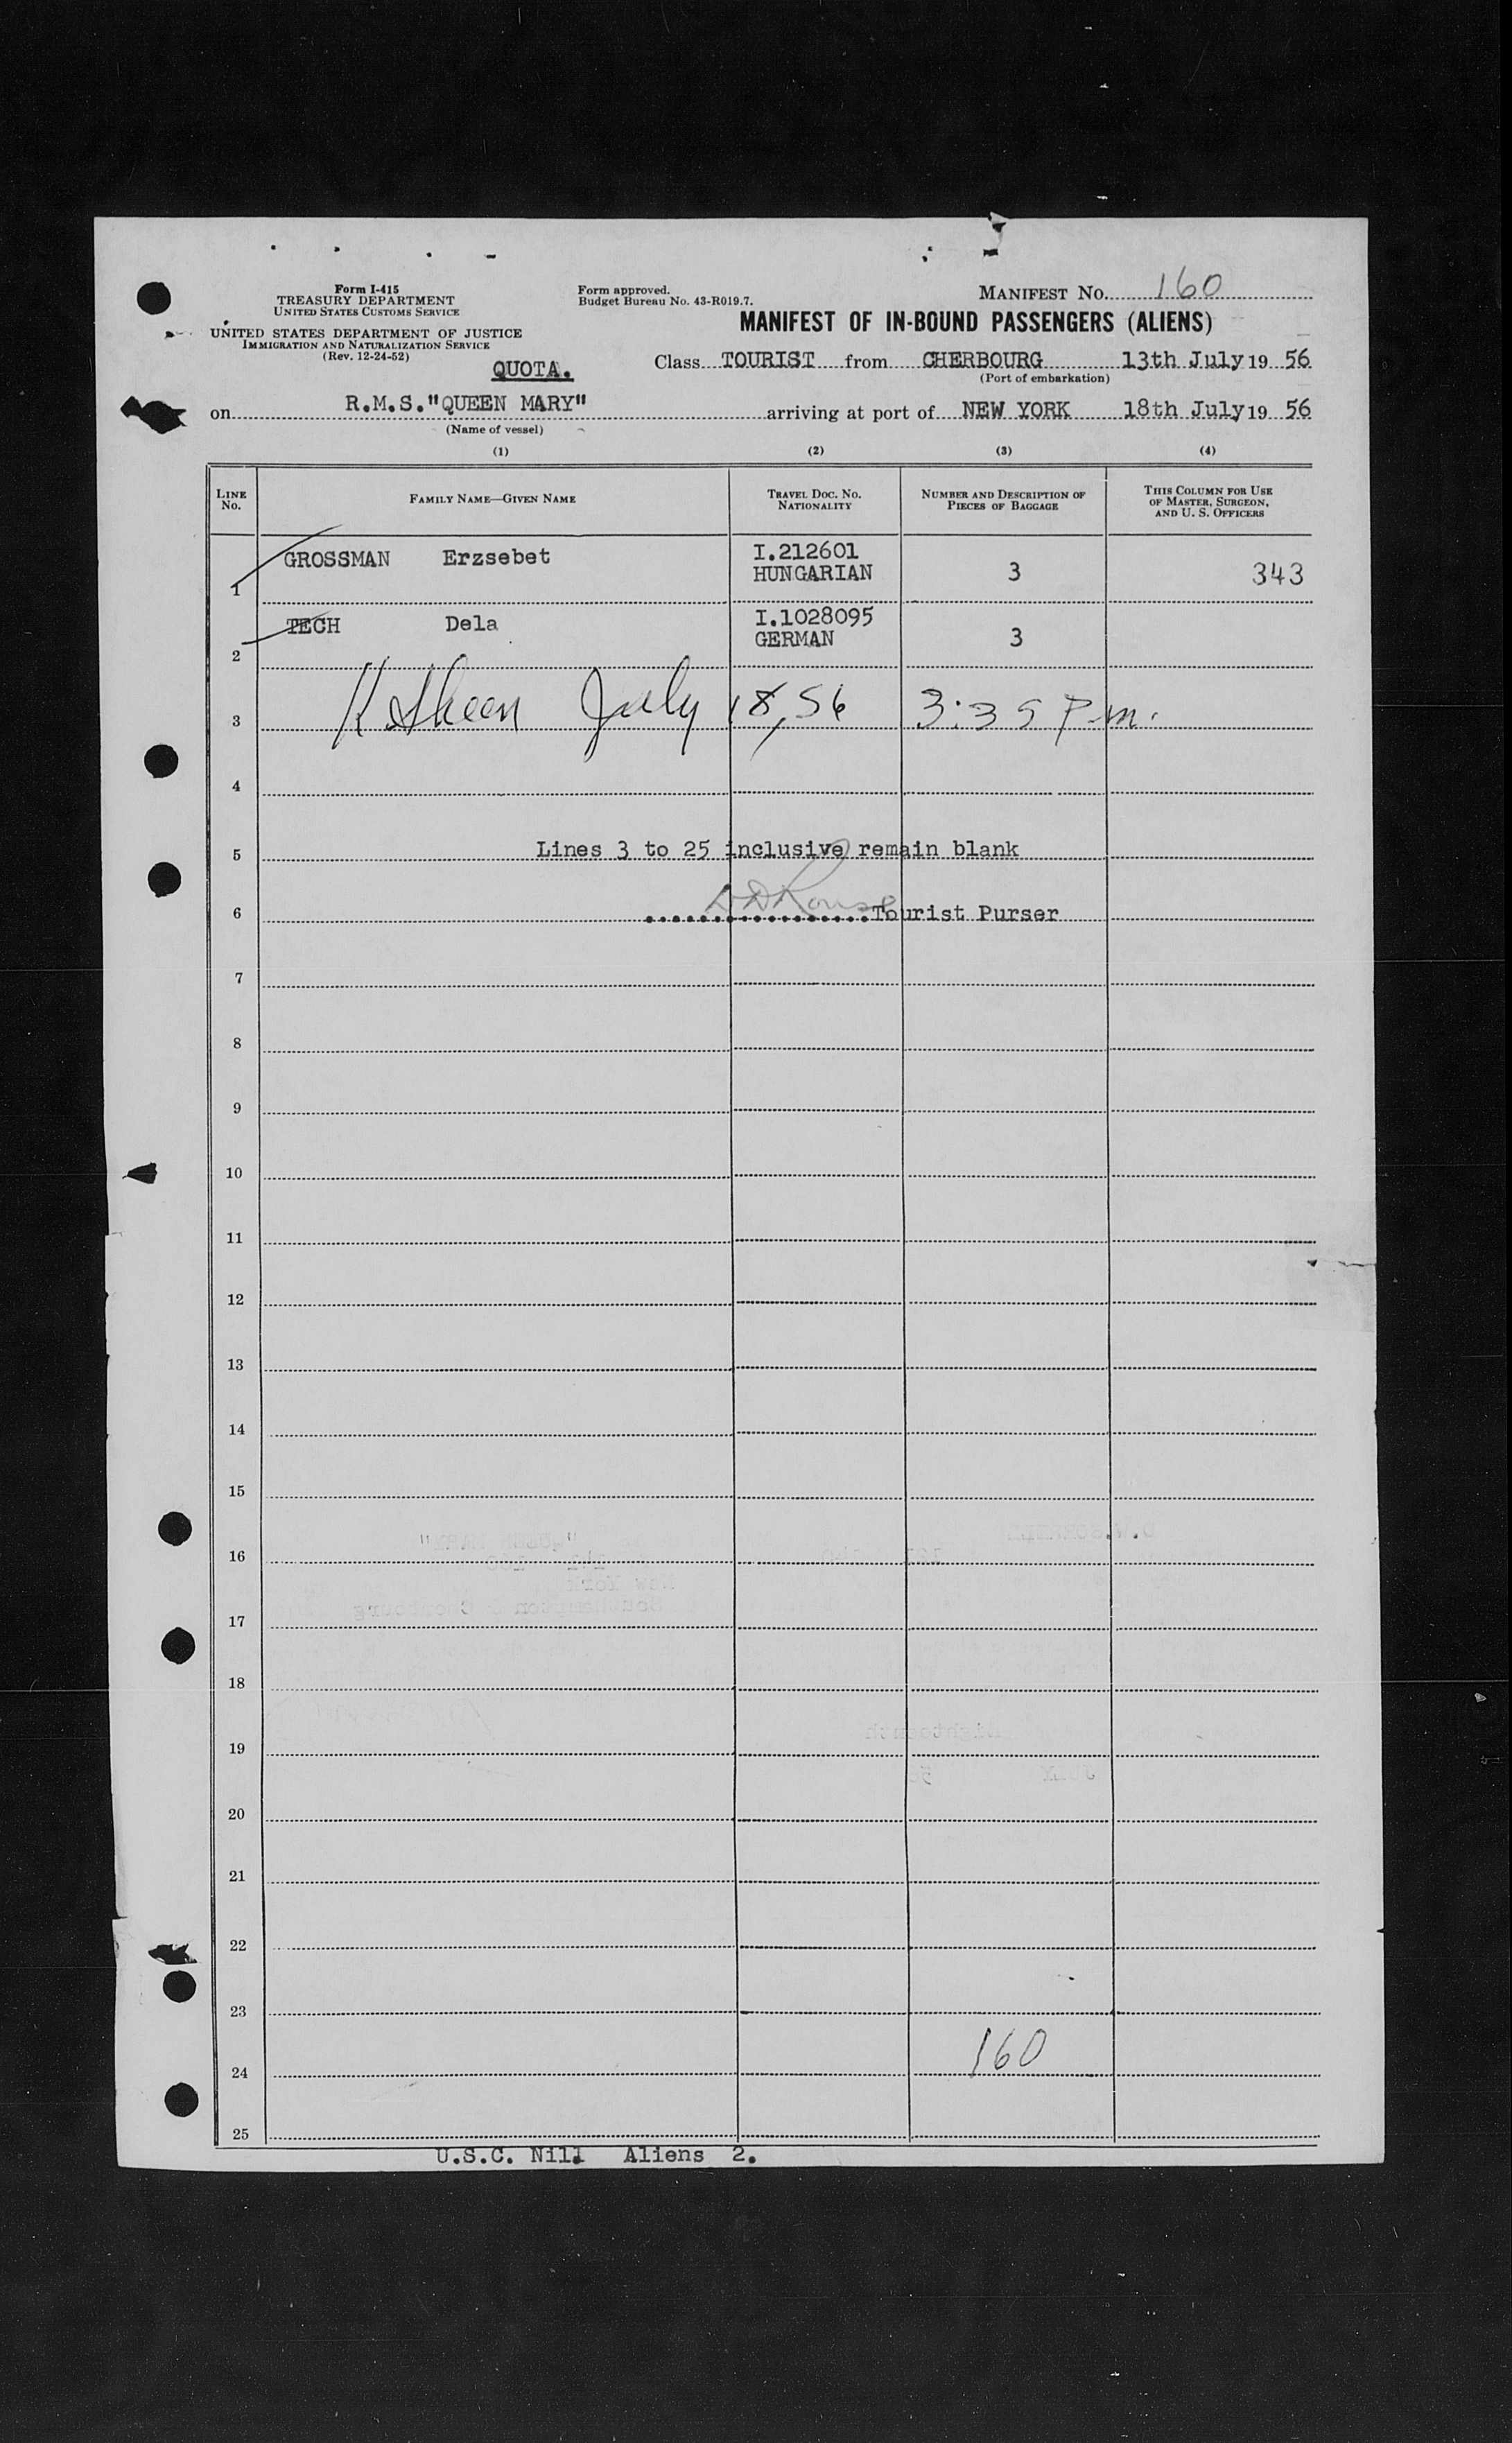 Form I-415
TREASURY DEPARTMENT
UNITED STATES CUSTOMS SERVICE
UNITED STATES DEPARTMENT OF JUSTICE
IMMIGRATION AND NATURALIZATION SERVICE
(Rev. 12-24-52)
Form approved.
Budget Bureau No. 43-R019.7.
MANIFEST NO. 160
MANIFEST OF IN-BOUND PASSENGERS (ALIENS)
QUOTA.
Class TOURIST from CHERBOURG 13th July 19 56
(Port of embarkation)
on R.M.S."QUEEN MARY" arriving at port of NEW YORK 18th July 19 56
(Name of vessel)
(1) (2) (3) (4)
LINE No. FAMILY NAME—GIVEN NAME TRAVEL DOC. NO. NATIONALITY NUMBER AND DESCRIPTION OF PIECES OF BAGGAGE THIS COLUMN FOR USE OF MASTER, SURGEON, AND U. S. OFFICERS
1 GROSSMAN Erzsebet I.212601 HUNGARIAN 3 343
2 TECH Dela I.1028095 GERMAN 3
3 July 18, 56 3:35 P.m.
4
5 Lines 3 to 25 inclusive remain blank
6 Tourist Purser
7
8
9
10
11
12
13
14
15
16
17
18
19
20
21
22
23
24 160
25
U.S.C. Nill Aliens 2.